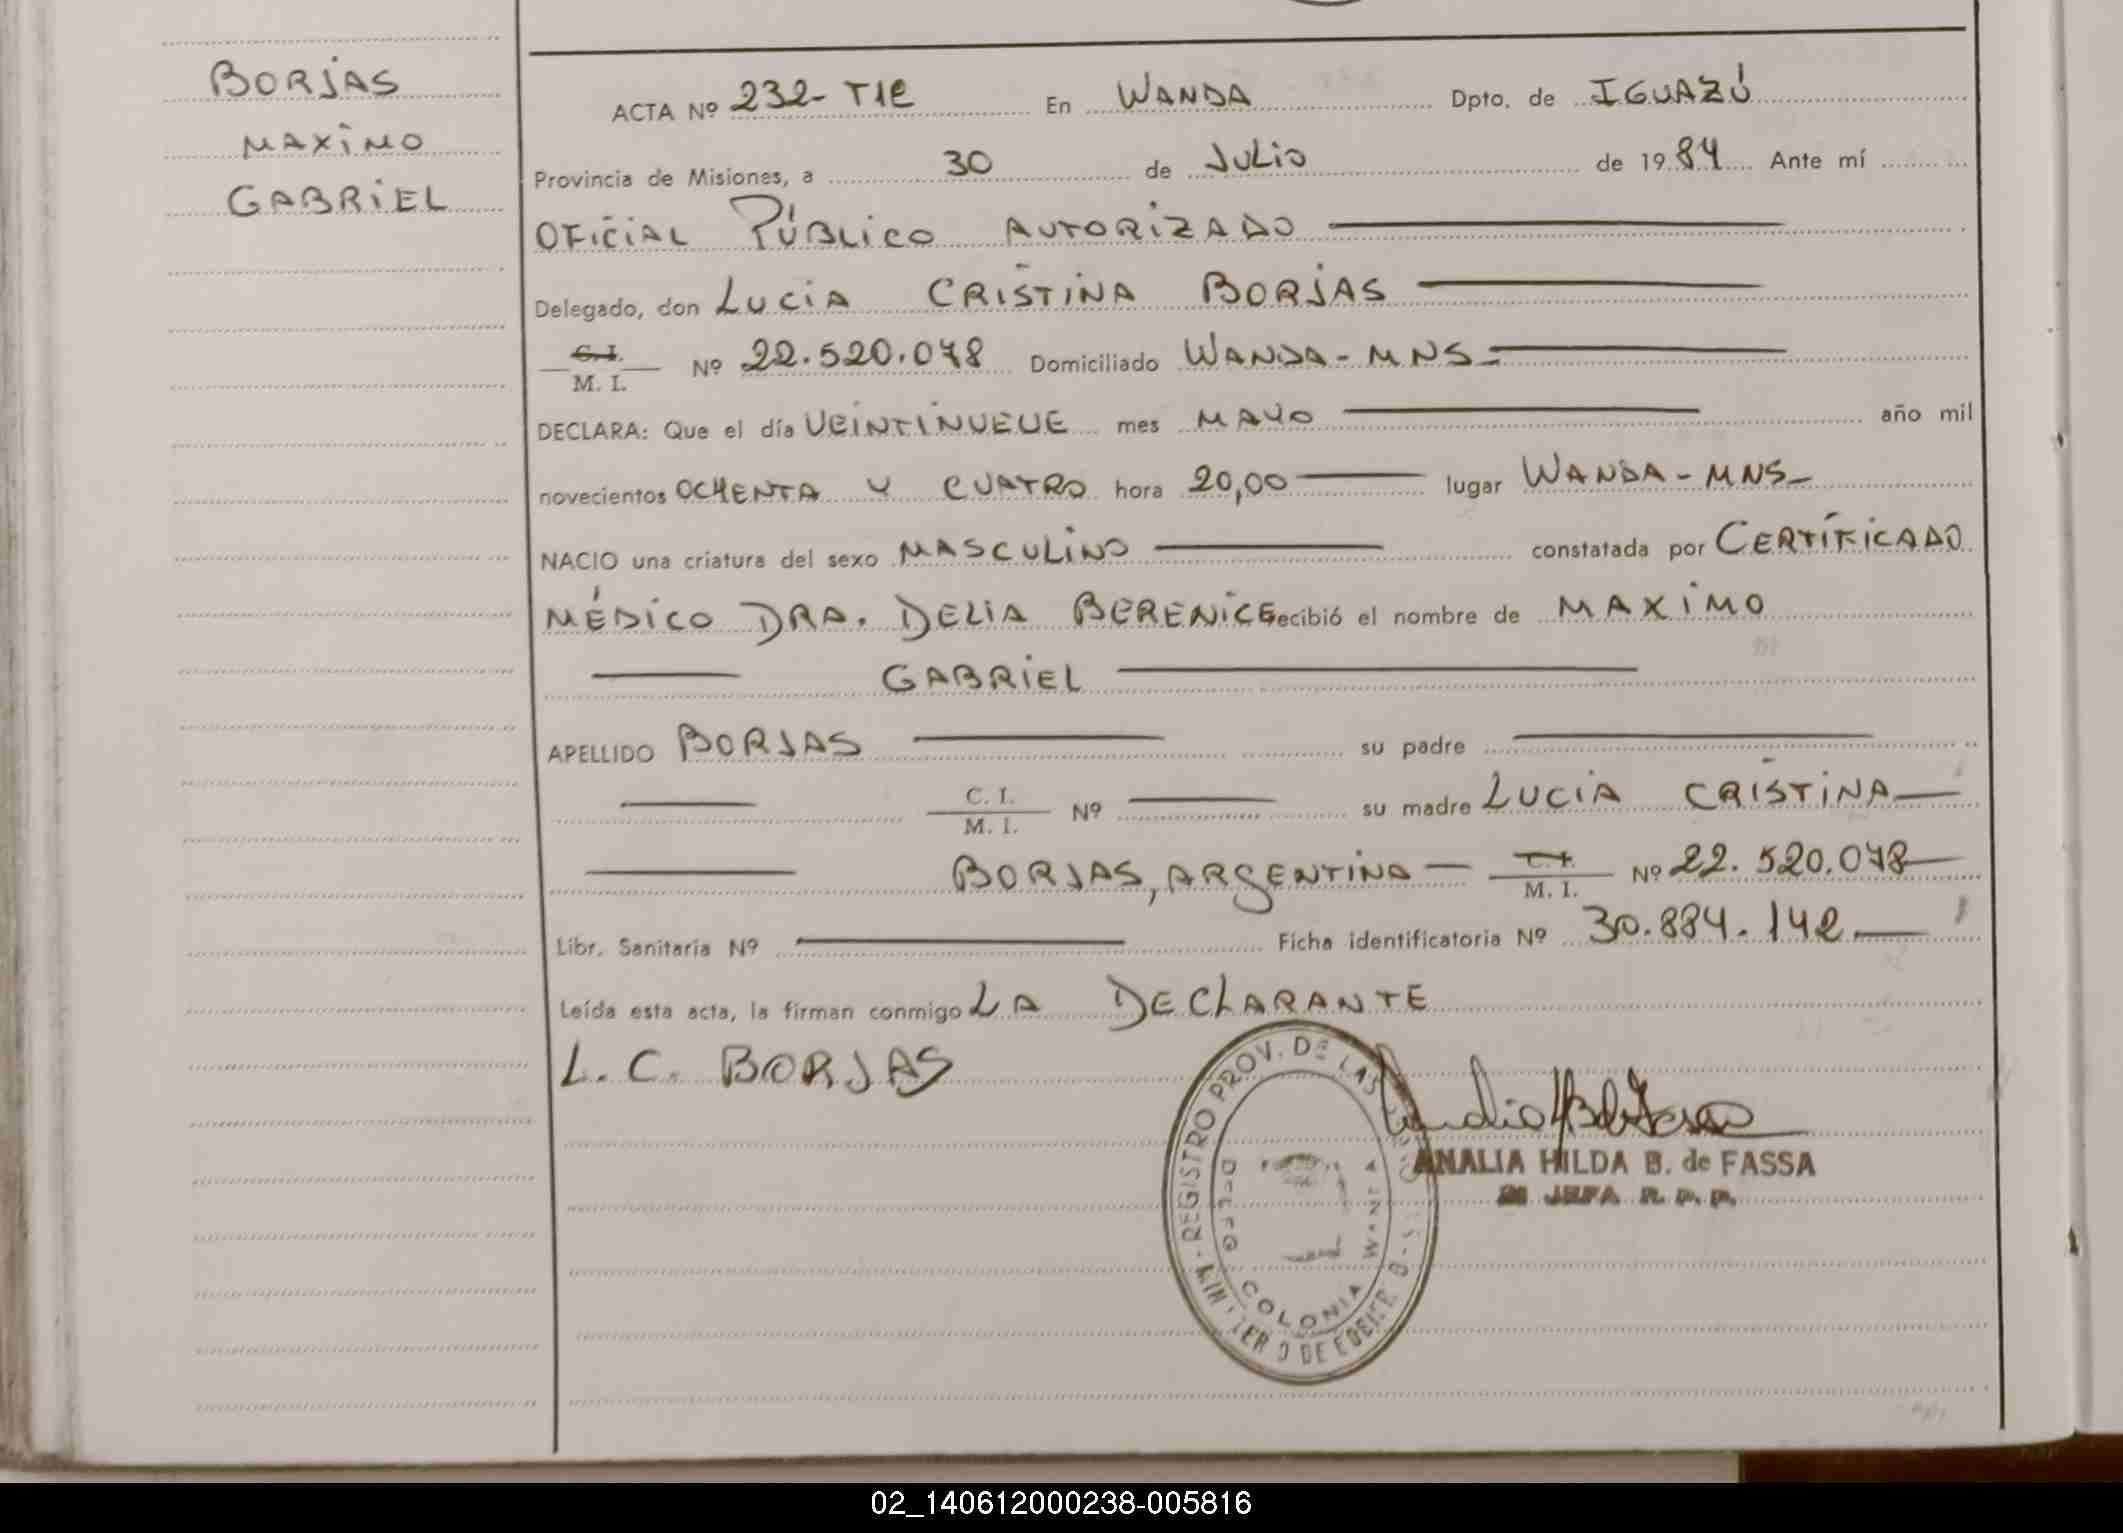 BORJAS
MAXIMO
GABRIEL
ACTA Nº 232- T1E En WANDA Dpto. de IGUAZÚ
Provincia de Misiones, a 30 de JULIO de 1984 Ante mí
OFICIAL PÚBLICO AUTORIZADO
Delegado, don LUCIA CRISTINA BORJAS
C. I.
M. I. Nº 22.520.078 Domiciliado WANDA - MNS -
DECLARA: Que el día VEINTINUEVE mes MAYO año mil
novecientos OCHENTA Y CUATRO hora 20,00 lugar WANDA - MNS -
NACIO una criatura del sexo MASCULINO constatada por CERTIFICADO
MÉDICO DRA. DELIA BERENICE ecibió el nombre de MAXIMO
GABRIEL
APELLIDO BORJAS su padre
C. I.
M. I. Nº su madre LUCIA CRISTINA
BORJAS, ARGENTINA C. I.
M. I. Nº 22.520.078
Libr. Sanitaria Nº Ficha identificatoria Nº 30.884.142.
Leída esta acta, la firman conmigo LA DECLARANTE
L. C. BORJAS
REGISTRO PROV. DE LAS
COLONIA WANDA
ANALIA HILDA B. de FASSA
JEFA R. P. P.
02_140612000238-005816